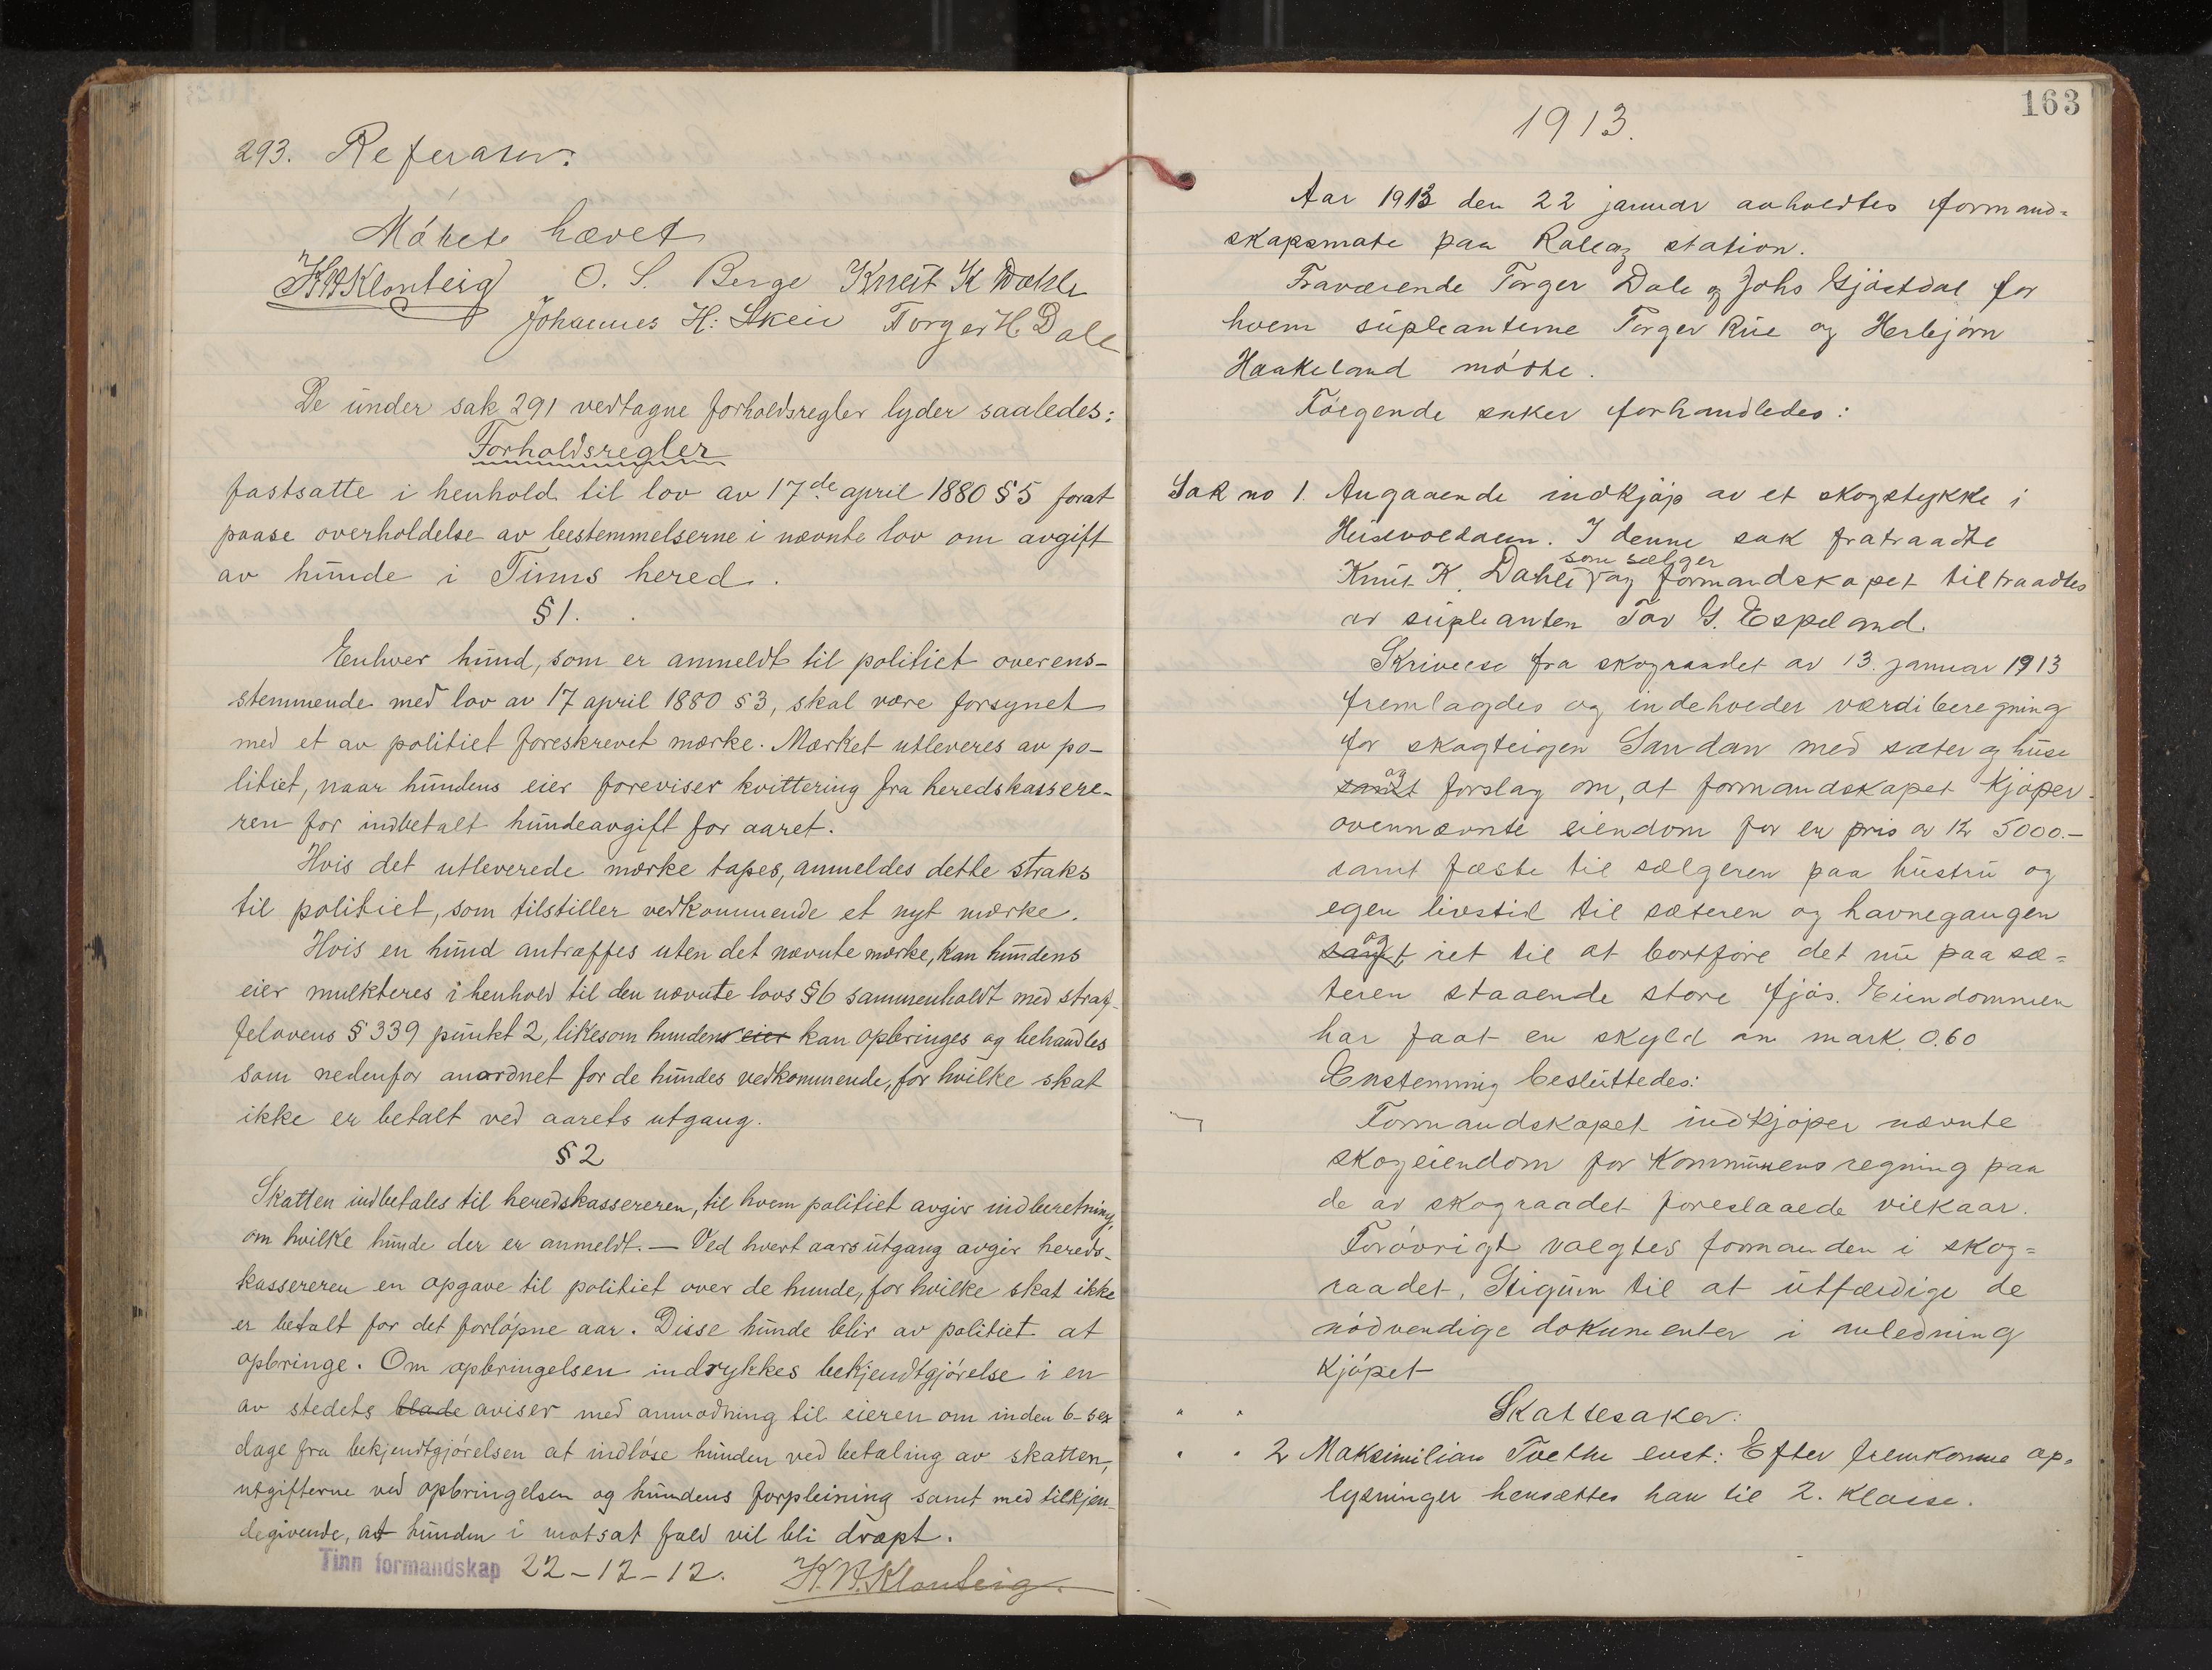 293. Referater:
Mötet hævet
H H Klonteig O. S. Berge Knut K Dahle
Johannes H. Skeie Torger H. Dale
De under sak 291 vedtagne forholdsregler lyder saaledes:
Forholdsregler
fastsatte i henhold til lov av 17de april 1880 § 5 forat
paase overholdelse av bestemmelserne i nævnte lov om avgift
av hunde i Tinns hered.
§ 1.
Enhver hund, som er anmeldt til politiet overens-
stemmende med lov av 17 april 1880 § 3, skal være forsynet
med et av politiet foreskrevet mærke. Mærket utleveres av po-
litiet, naar hundens eier foreviser kvittering fra heredskassere-
ren for indbetalt hundeavgift for aaret.
Hvis det utleverede mærke tapes, anmeldes dette straks
til politiet, som tilstiller vedkommende et nyt mærke.
Hvis en hund antræffes uten det nævnte mærke, kan hundens
eier mulkteres i henhold til den nævnte lovs § 6 sammenholdt med straf-
felovens § 339 punkt 2, likesom hundens eier kan opbringes og behandles
som nedenfor anordnet for de hundes vedkommende, for hvilke skat
ikke er betalt ved aarets utgang.
§ 2
Skatten indbetales til heredskassereren, til hvem politiet avgir indberetning,
om hvilke hunde der er anmeldt. — Ved hvert aars utgang avgir hereds-
kassereren en opgave til politiet over de hunde, for hvilke skat ikke
er betalt for det forløpne aar. Disse hunde blir av politiet at
opbringe. Om opbringelsen indrykkes bekjendtgjörelse i en
av stedets blade aviser med anmodning til eieren om inden 6-sex
dage fra bekjendtgjörelsen at indlöse hunden ved betaling av skatten,
utgifterne ved opbringelsen og hundens forpleining samt med tilkjen-
degivende, at hunden i motsat fald vil bli dræpt.
Tinn formandskap 22-12-12. H. H. Klonteig.
163
1913.
Aar 1913 den 22 januar avholdtes formand=
skapsmøte paa Rollag station.
Fraværende Torger Dale og Johs Gjöstdal for
hvem supleanterne Torger Rue og Herbjörn
Haakeland mötte.
Fölgende saker forhandledes:
Sak no 1. Angaaende indkjöp av et skogstykke i
Husevoldalen. I denne sak fratraadte
som sælger
Knut K. Dahle og formandskapet tiltraadtes
av supleanten Tov G. Espeland.
Skrivelse fra skograadet av 13. januar 1913
fremlagdes og indeholder værdiberegning
for skogteigen Sandan med sæter og huse
og
samt forslag om, at formandskapet kjöper
ovennævnte eiendom for en pris av Kr 5000.-
samt fæste til sælgeren paa hustru og
egen livstid til sæteren og havnegangen
og
samt ret til at bortföre det nu paa sæ=
teren staaende store fjös. Eiendommen
har faat en skyld av mark 0.60
Enstemmig besluttedes:
Formandskapet indkjöper nævnte
skogeiendom for Kommunens regning paa
de av skograadet foreslaaede vilkaar.
Forövrigt valgtes formanden i skog=
raadet, Stigum til at utfærdige de
nödvendige dokumenter i anledning
kjöpet
" " Skattesaker:
" " 2 Maksimilian Tveten enst: Efter fremkomne op=
lysninger hensættes han til 2. klasse.